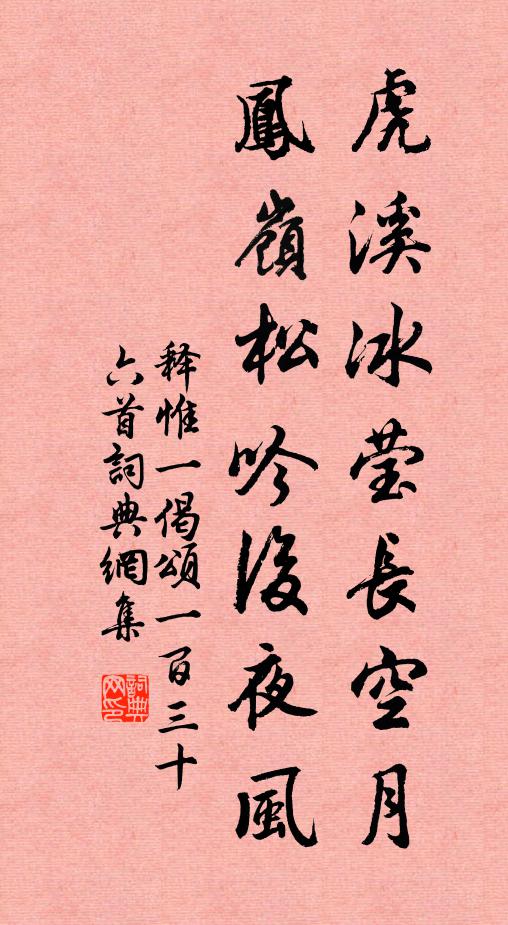 虎溪冰莹長空月
鳳嶺松吟後夜風
释惟一偈頌一百三十
六首詞典網集
詞典网印